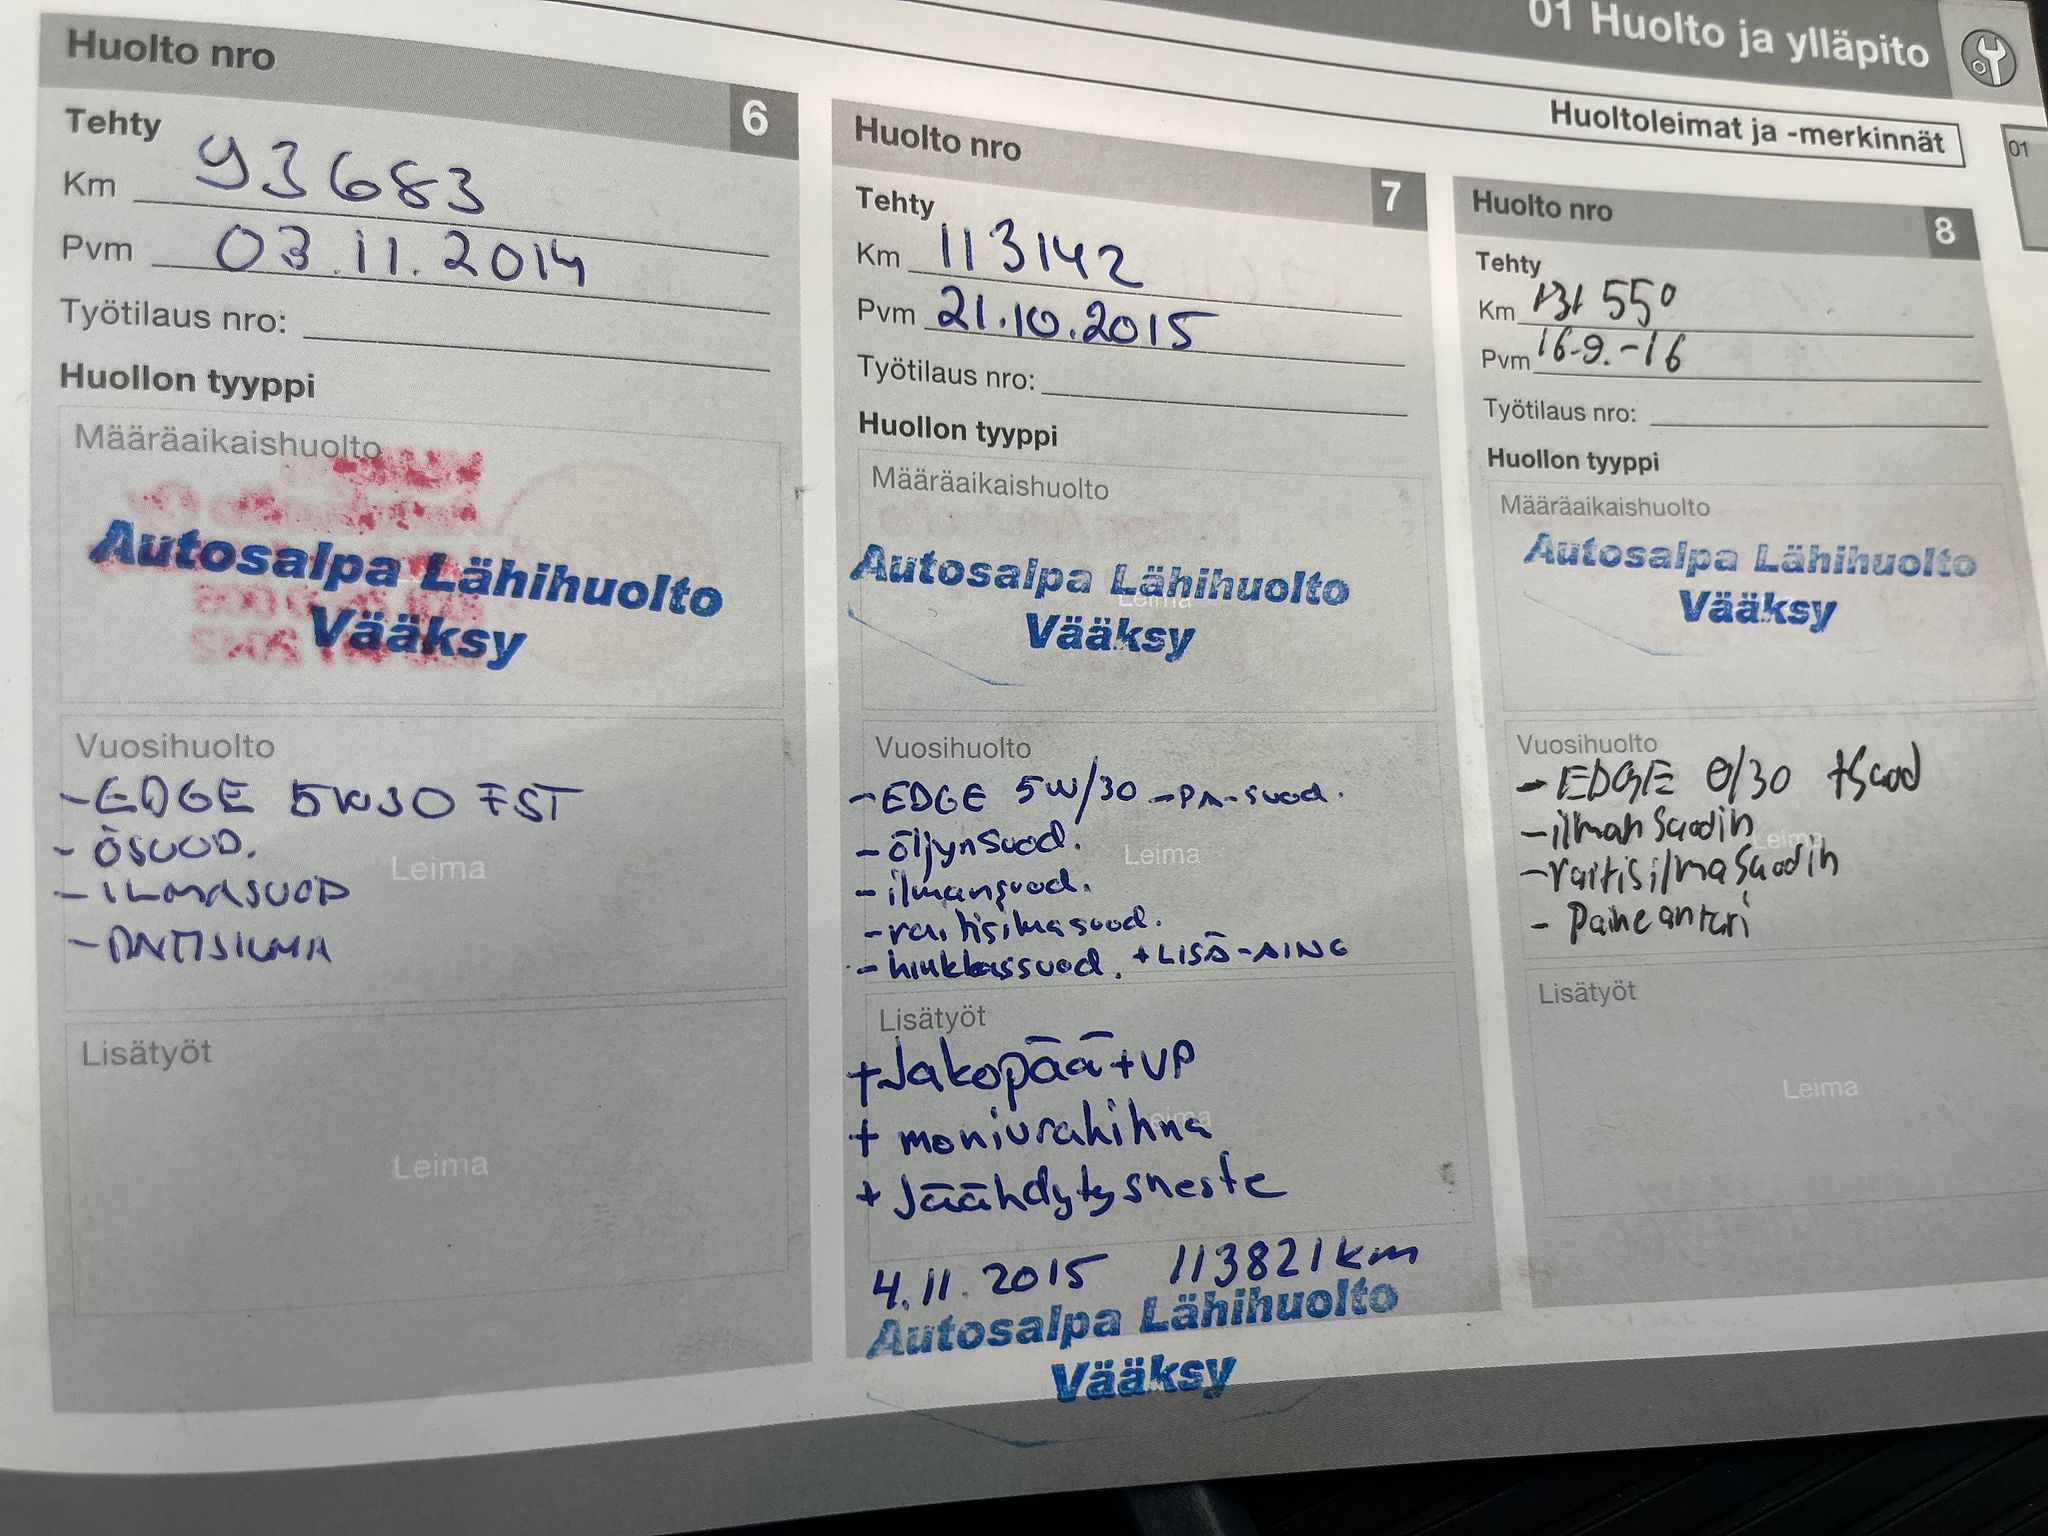 01 Huolto ja ylläpito
Huoltoleimat ja -merkinnät
01
Huolto nro
6
Tehty
Km 93683
Pvm 03.11.2014
Työtilaus nro:
Huollon tyyppi
Määräaikaishuolto
Autosalpa Lähihuolto
Vääksy
Vuosihuolto
- EDGE 5W30 FST
- ÖSUOD.
- ILMASUOD
Leima
Lisätyöt
Leima
Huolto nro
7
Tehty
Km 113142
Pvm 21.10.2015
Työtilaus nro:
Huollon tyyppi
Määräaikaishuolto
Leima
Autosalpa Lähihuolto
Vääksy
Vuosihuolto
- EDGE 5W/30 - PA-suod.
- öljynsuod.
Leima
- ilmansuod.
- raitisilmasuod.
- hiukkassuod. + LISÄ-AING
Lisätyöt
+ Jakopää + VP
Leima
+ moniurahihna
+ Jäähdytysneste
4.11.2015 113821 km
Autosalpa Lähihuolto
Vääksy
Huolto nro
8
Tehty
Km 131 550
Pvm 16-9.-16
Työtilaus nro:
Huollon tyyppi
Määräaikaishuolto
Autosalpa Lähihuolto
Vääksy
Vuosihuolto
- EDGE 0/30 +suod
- ilman suodin
Leima
- raitisilmasuodin
- Paineanturi
Lisätyöt
Leima